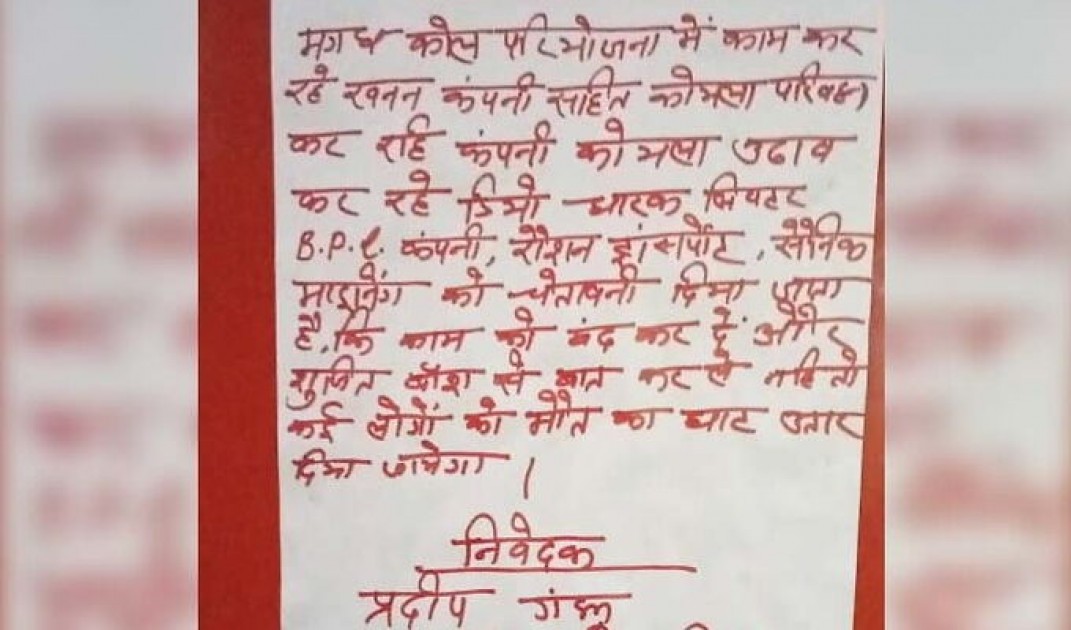 मगध कोल परियोजना में काम कर
रहे खनन कंपनी सहित कोयला परिवहन
कर रहि कंपनी कोयला उठाव
कर रहे डिओ धारक लिफ्टर
B.P.L. कंपनी, रौशन ट्रांसर्पोट, सैनिक
माइनिंग को चेतावनी दिया जाता
है, कि काम को बंद कर दें और
सुजित बॉश से बात कर ले नहि तो
कई लोगों को मौत का घाट उतार
दिया जायेगा ।
निवेदक
प्रदीप गंझू